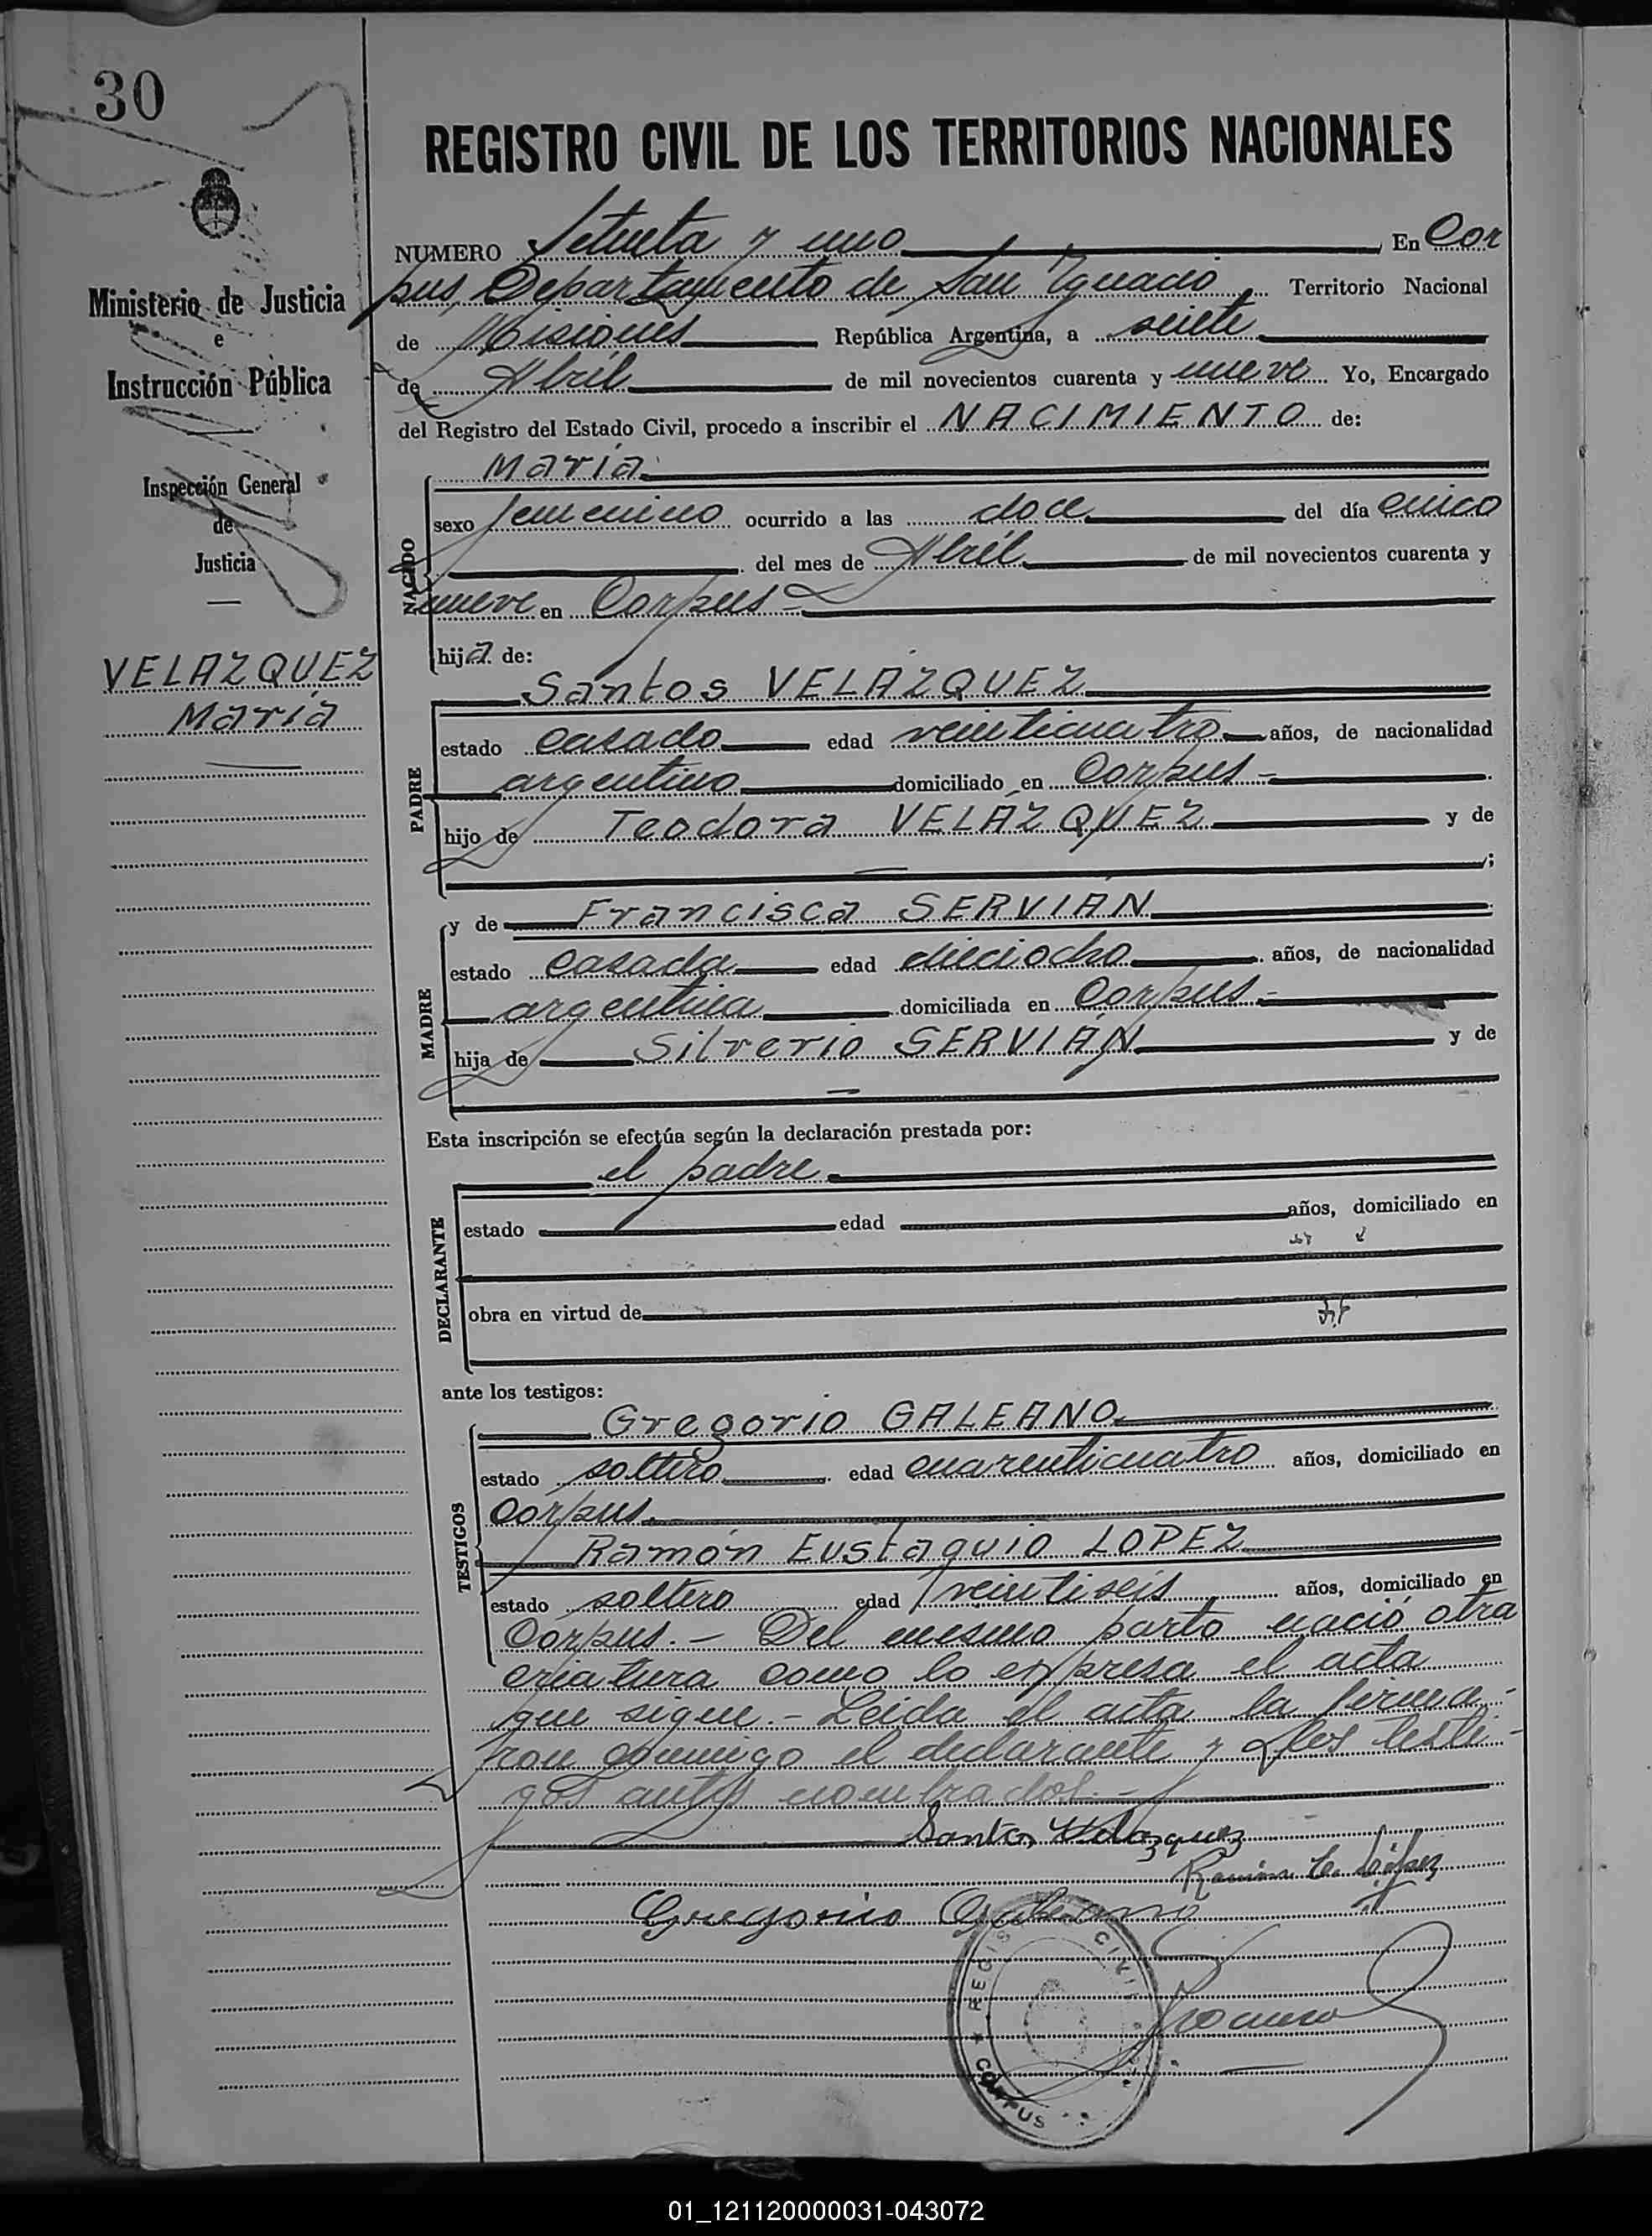 30
REGISTRO CIVIL DE LOS TERRITORIOS NACIONALES
Ministerio de Justicia
e
Instrucción Pública
Inspección General
de
Justicia
VELAZQUEZ
María
NUMERO Setenta y uno En Cor
pus, Departamento de San Ignacio Territorio Nacional
de Misiones República Argentina, a siete
de Abril de mil novecientos cuarenta y nueve Yo, Encargado
del Registro del Estado Civil, procedo a inscribir el NACIMIENTO de:
NACIDO
María
sexo femenino ocurrido a las doce del día cinco
del mes de Abril de mil novecientos cuarenta y
nueve en Corpus
hija de:
PADRE
Santos VELAZQUEZ
estado casado edad veinticuatro años, de nacionalidad
argentino domiciliado en Corpus
hijo de Teodora VELÁZQUEZ y de
;
MADRE
y de Francisca SERVIAN
estado casada edad dieciocho años, de nacionalidad
argentina domiciliada en Corpus
hija de Silverio SERVIAN y de
Esta inscripción se efectúa según la declaración prestada por:
DECLARANTE
el padre
estado edad años, domiciliado en
obra en virtud de
ante los testigos:
TESTIGOS
Gregorio GALEANO
estado soltero edad cuarenticuatro años, domiciliado en
Corpus.
Ramón Eustaquio LOPEZ
estado soltero edad veintiseis años, domiciliado en
Corpus. - Del mismo parto nació otra
criatura como lo expresa el acta
que sigue. - Leida el acta la firma-
ron conmigo el declarante y los testi-
gos antes nombrados. -
Santos Velazquez
Ramón E. López
Gregorio Galeano
REGIS CIVIL
CORPUS
01_121120000031-043072